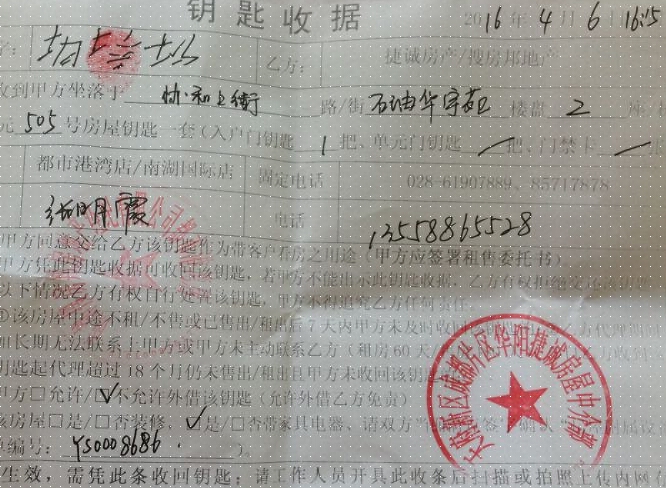 钥匙收据 2016年4月6 16:15
字: 乙方: 捷诚房产/搜房邦地产
收到甲方坐落于 协和上街 路/街 石油华宇苑 楼盘 2
元 505 号房屋钥匙一套(入户门钥匙 1 把、单元门钥匙 / 把、门禁卡 /
都市港湾店/南湖国际店 固定电话 028-61907889、85717878
张明霞 电话 13558865528
甲方同意交给乙方该钥匙作为带客户看房之用途(甲方应签署租售委托书)
甲方凭此钥匙收据可收回该钥匙,若甲方不能出示此钥匙收据,乙方有权拒绝交还该钥匙
以下情况乙方有权自行处置该钥匙,甲方不得追究乙方任何责任:
①该房屋中途不租/不售或已售出/租出后7天内甲方未及时收回
如长期无法联系上甲方或甲方未主动联系乙方(租房60天/
钥匙起代理超过18个月仍未售出/租出且甲方未收回该钥匙
甲方□允许/☑不允许外借该钥匙(允许外借乙方免责)
该房屋□是/□否装修,☑是/□否带家具电器、请双方当
单编号: YS0008686 )。
生效,需凭此条收回钥匙;请工作人员开具此收条后扫描或拍照上传内网
华阳捷诚房屋中介部